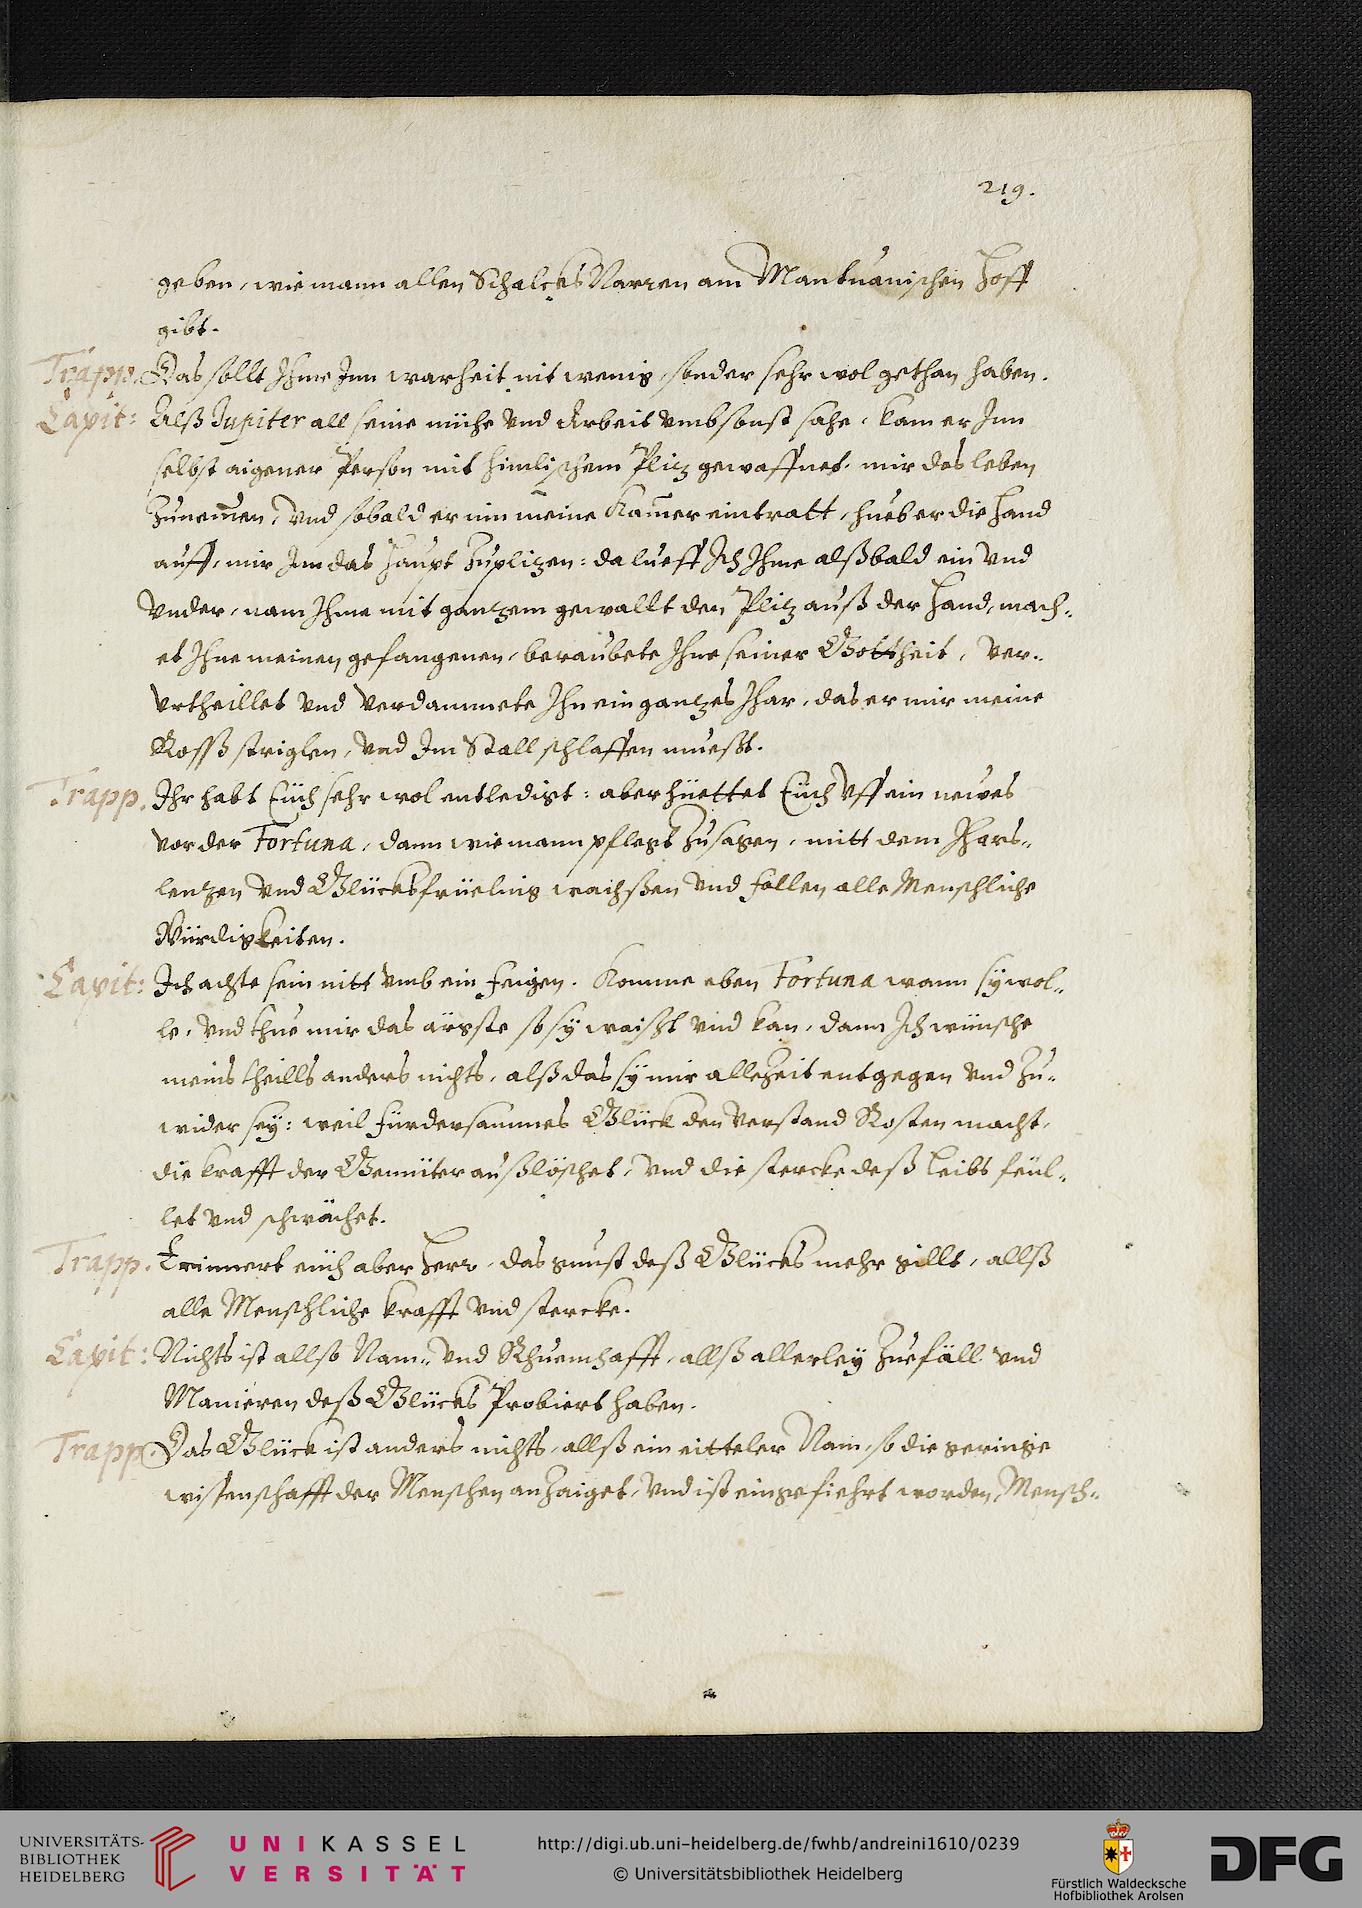 219.
geben, wie mann allen Schalcks Narren am Mantuanischen Hoff
gibt.
Trapp. Das sollt Ihme Inn warheit nit wenig, sonder sehr wol gethan haben.
Capit: Alß Jupiter all seine mühe vnd Arbeit vmbsonst sahe, kam er Inn
selbst aigener Person mit himlischem Plitz gewaffnet, mir das leben
Zunemen, vnd sobald er inn meine Kamer eintratt, hueb er die Hand
auff, mir Inn das Haupt Zuplitzen: da lueff Ich Ihme alßbald ein vnd
vnder, nam Ihme mit gantzem gewallt den Plitz auß der Hand, mach-
et Ihne meinen gefangenen, beraubete Ihne seiner Gottheit, ver-
vrtheillet vnd verdammete Ihn ein gantzes Jhar, das er mir meine
Rosß striglen, vnd Im Stall schlaffen muesst.
Trapp. Ihr habt Euch sehr wol entledigt: aber hüettet Euch vff ein newes
vor der Fortuna, dann wie mann pflegt Zusagen, mitt dem Jhars-
lentzen vnd Glücksfrüeling wachßen vnd fallen alle Menschliche
Würdigkeiten.
Capit: Ich achte sein nitt vmb ein feigen. Komme eben Fortuna wann sy wol-
le, vnd thue mir das ärgste so sy waißt vnd kan, dann Ich wünsche
meins theills anders nichts, alß das sy mir alleZeit entgegen vnd Zu-
wider sey: weil fürdersammes Glück den verstand Rosten macht,
die krafft der Gemüter außlöschet, vnd die stercke deß Leibs feül-
let vnd schwächet.
Trapp. Erinnert eüch aber Herr, das gunst deß Glücks mehr gillt, allß
alle Menschliche krafft vnd stercke.
Capit: Nichts ist allso Nam- vnd Rhuemhafft, allß allerley Zuefäll vnd
Manieren deß Glücks Probiert haben.
Trapp. Das Glück ist anders nichts, allß ein eitteler Nam, so die geringe
wissenschafft der Menschen anZaiget, vnd ist eingefiehrt worden, Mensch-
UNIVERSITÄTS-
BIBLIOTHEK
HEIDELBERG
UNIKASSEL
VERSITÄT
http://digi.ub.uni-heidelberg.de/fwhb/andreini1610/0239
© Universitätsbibliothek Heidelberg
Fürstlich Waldecksche
Hofbibliothek Arolsen
DFG